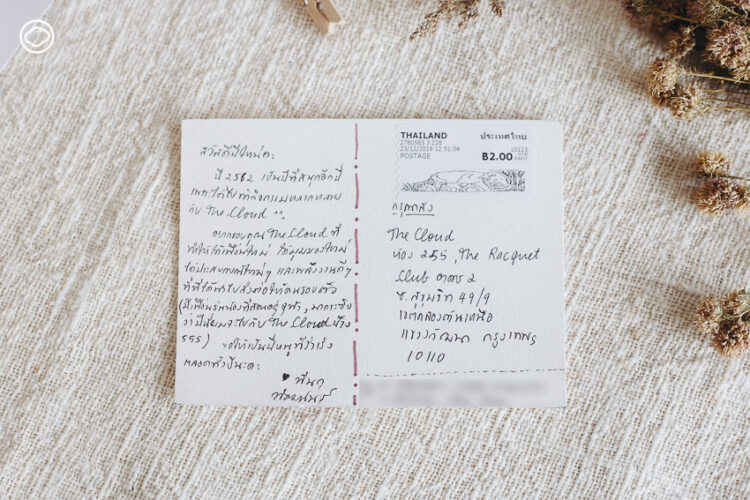 สวัสดีปีใหม่ค่ะ
ปี 2562 เป็นปีที่สนุกอีกปี
เพราะได้ไปทำกิจกรรมหลากหลาย
กับ The Cloud
อยากขอบคุณ The Cloud ที่
ทำให้ได้เพื่อนใหม่ ได้มุมมองใหม่
ได้ประสบการณ์ใหม่ๆ และพลังงานดีๆ
ที่ได้นำไปส่งต่อให้คนรอบตัว
(มีเพื่อนรุ่นน้องที่สอนอยู่จุฬา, มากระซิบ
ว่าปีนี้ขอไปกับ The Cloud บ้าง
555) ขอให้เป็นปีหนูที่ร่าเริง
ตลอดทั้งปีนะคะ
♥
THAILAND ประเทศไทย
2780583 3 228
23/12/2019 12:51:04 10123
POSTAGE ฿2.00
กรุณาส่ง
The Cloud
ห้อง 255, The Racquet
Club อาคาร 2
ซ. สุขุมวิท 49/9
เขตคลองตันเหนือ
แขวงวัฒนา กรุงเทพฯ
10110